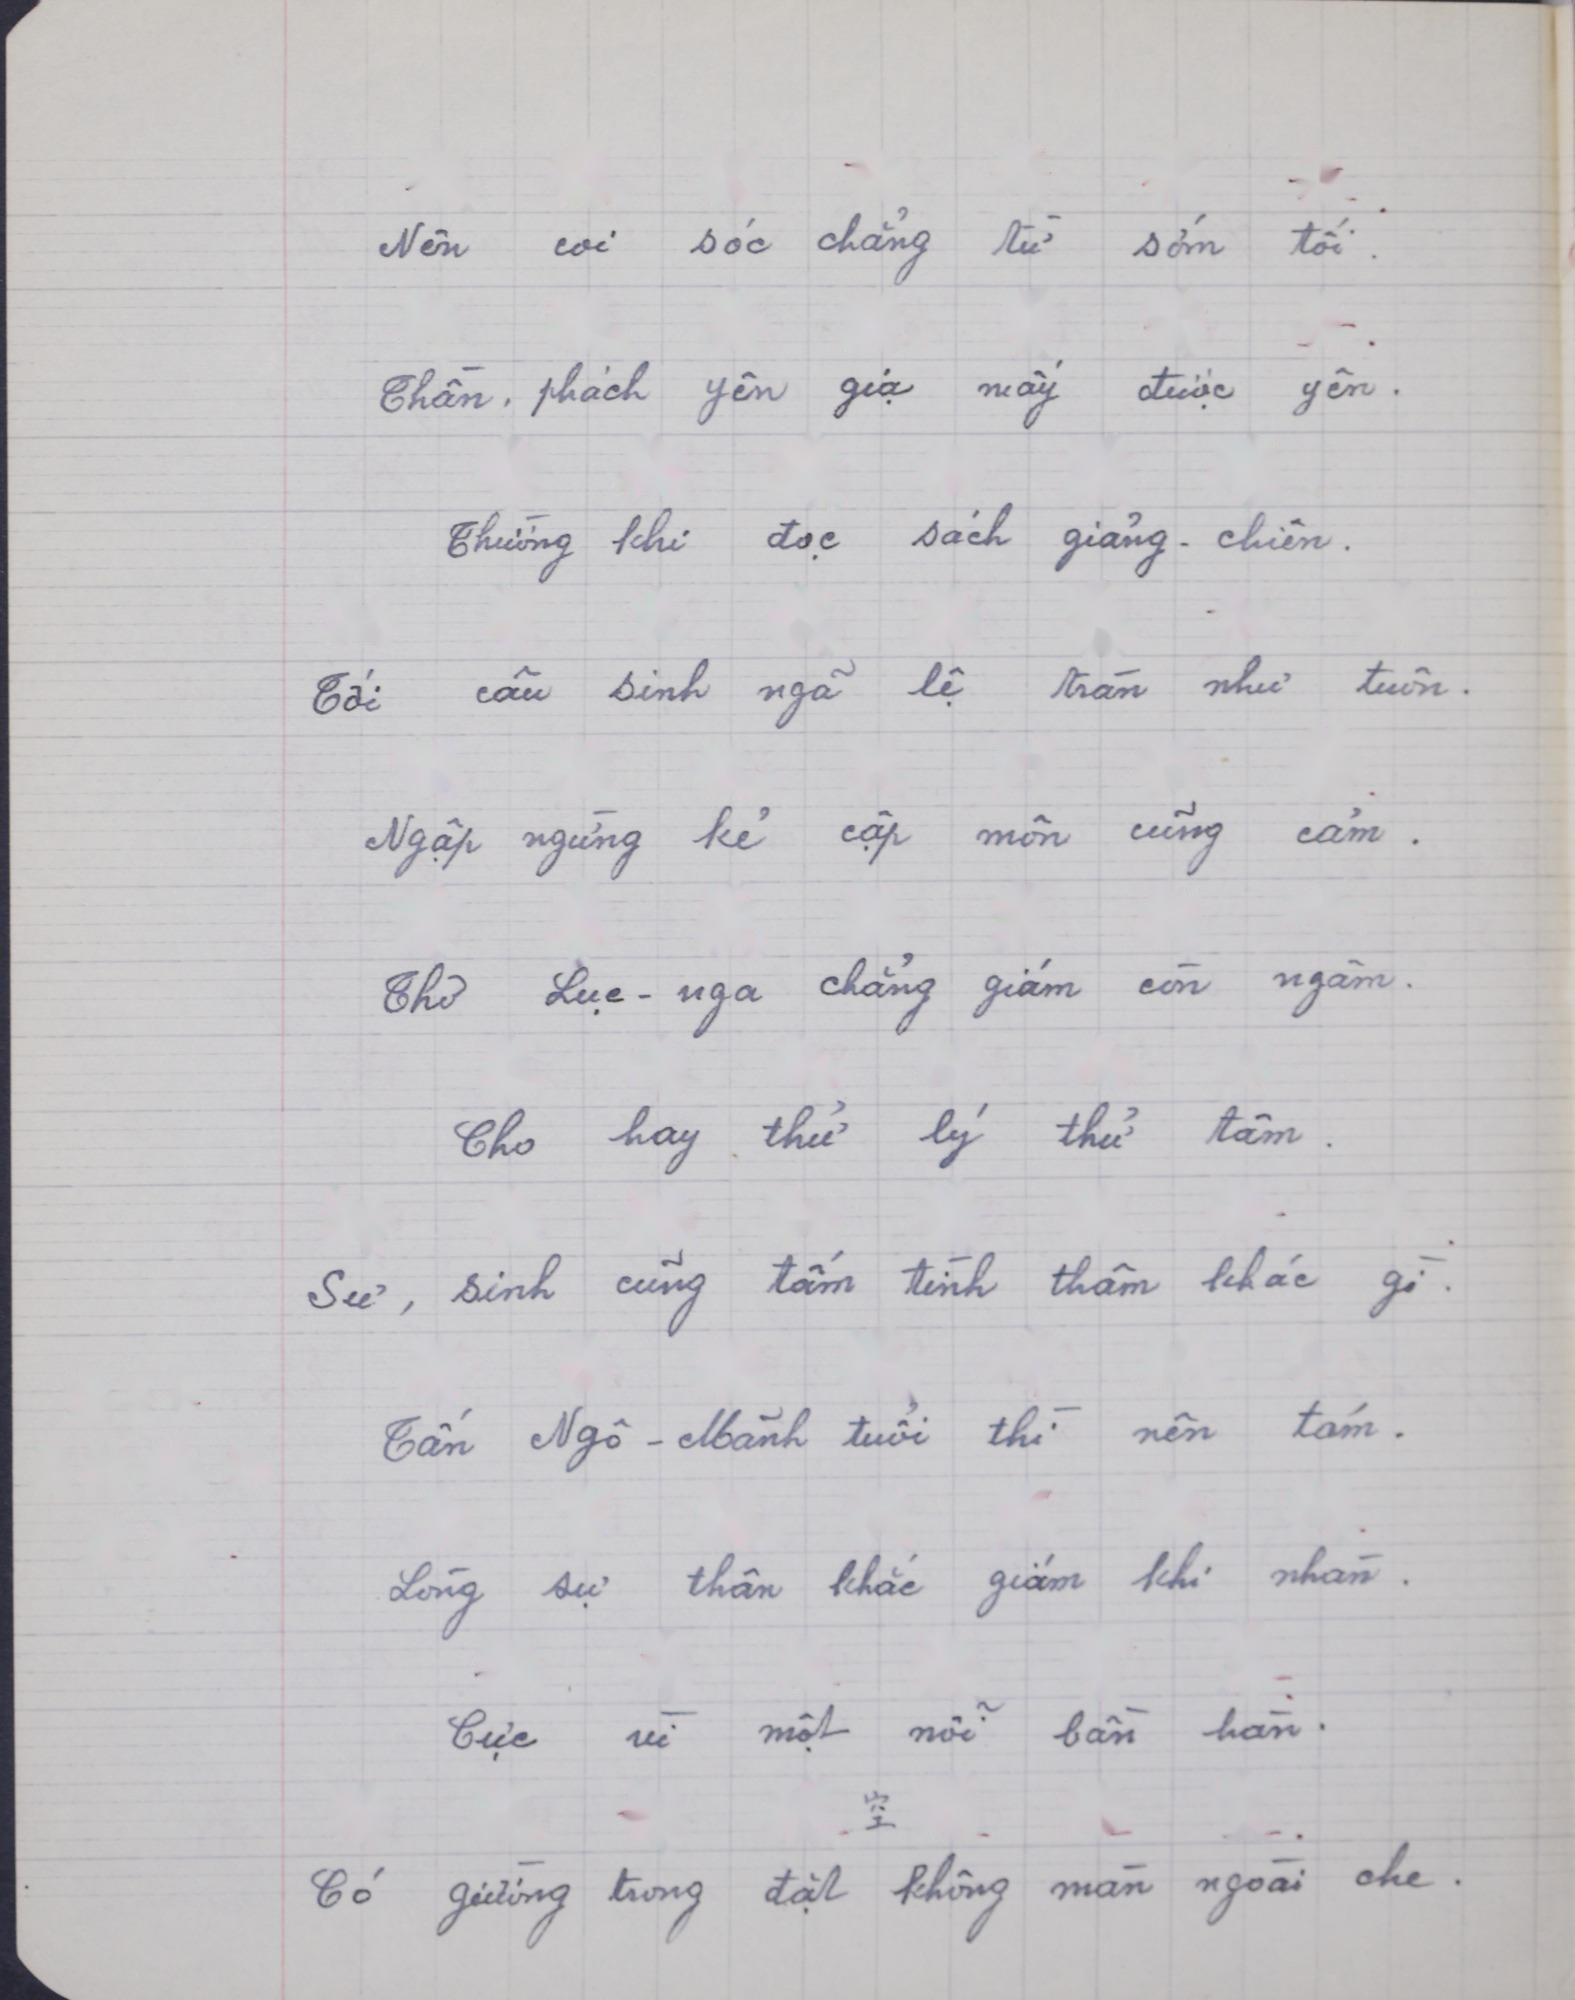 Nên coi sóc chẳng từ sớm tối.
Thần, phách yên giạ mấy được yên.
Thường khi đọc sách giảng-chiên.
Tới câu sinh ngã lệ tràn như tuôn.
Ngập ngừng kẻ cập môn cũng cảm.
Thơ Lục-nga chẳng giám còn ngâm.
Cho hay thử lý thử tâm.
Sư, sinh cũng tấm tình thâm khác gì.
Tấn Ngô-Mãnh tuổi thì nên tám.
Lòng sự thân khắc giám khi nhàn.
Cực vì một nỗi bần hàn.
空
Có giường trong đặt không màn ngoài che.